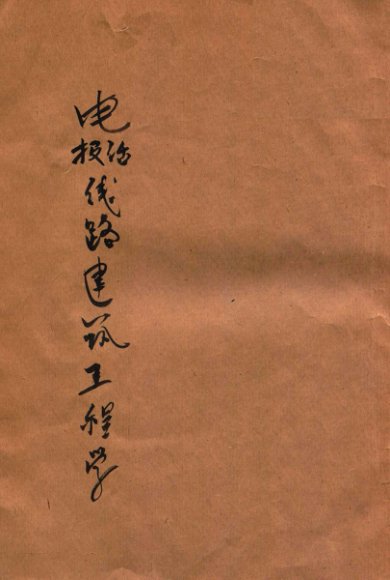 电报话线路建筑工程学